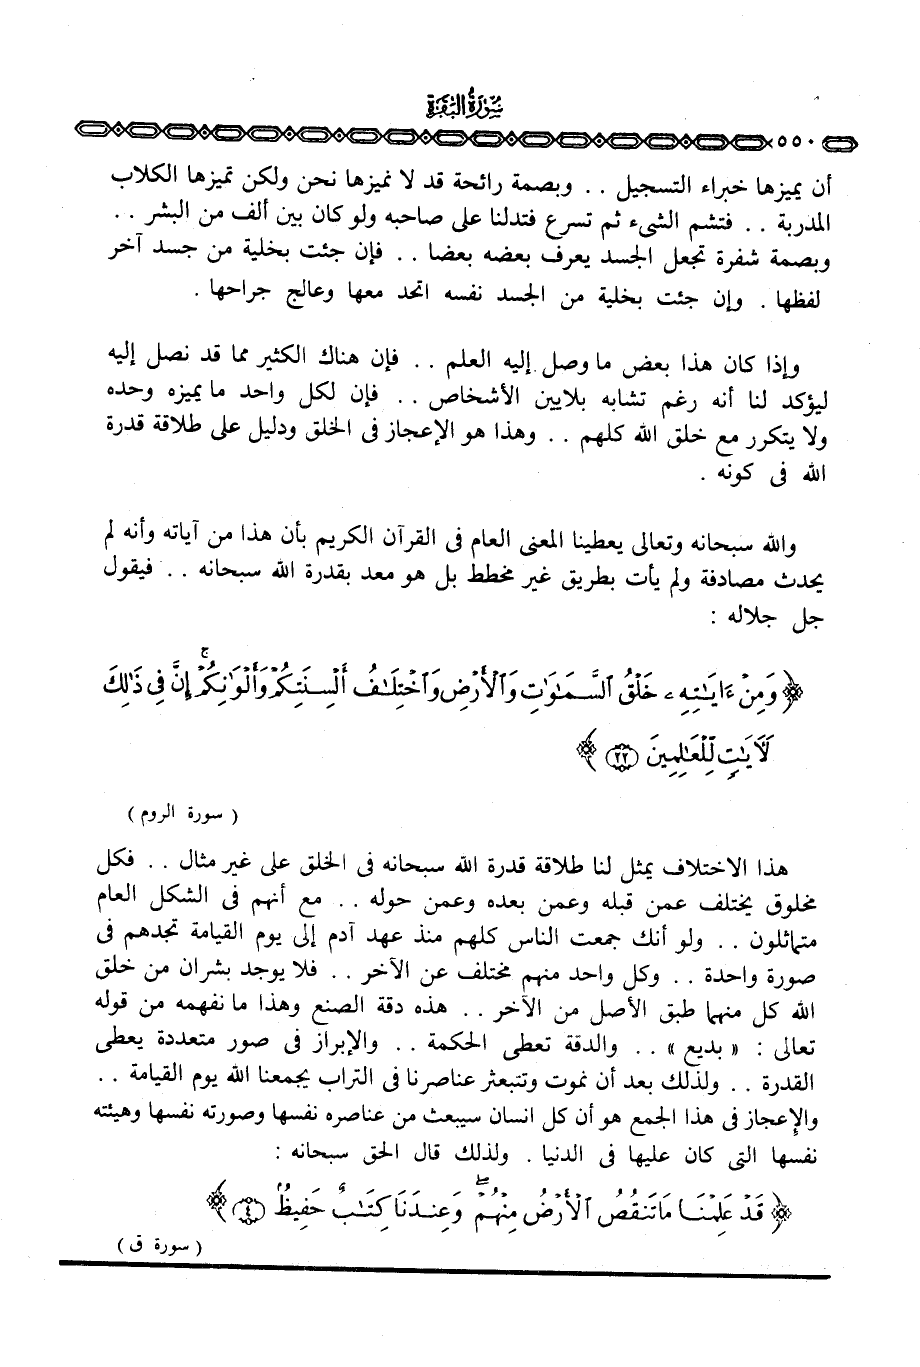 سورة البقرة
٥٥٠
أن يميزها خبراء التسجيل . . وبصمة رائحة قد لا نميزها نحن ولكن تميزها الكلاب
المدربة . . فتشم الشىء ثم تسرع فتدلنا على صاحبه ولو كان بين ألف من البشر . .
وبصمة شفرة تجعل الجسد يعرف بعضه بعضا . . فإن جئت بخلية من جسد آخر
لفظها . وإن جئت بخلية من الجسد نفسه اتحد معها وعالج جراحها .
وإذا كان هذا بعض ما وصل إليه العلم . . فإن هناك الكثير مما قد نصل إليه
ليؤكد لنا أنه رغم تشابه بلايين الأشخاص . . فإن لكل واحد ما يميزه وحده
ولا يتكرر مع خلق الله كلهم . . وهذا هو الإعجاز فى الخلق ودليل على طلاقة قدرة
الله فى كونه .
والله سبحانه وتعالى يعطينا المعنى العام فى القرآن الكريم بأن هذا من آياته وأنه لم
يحدث مصادفة ولم يأت بطريق غير مخطط بل هو معد بقدرة الله سبحانه . . فيقول
جل جلاله :
﴿ وَمِنْ ءَايَـٰتِهِۦ خَلْقُ ٱلسَّمَـٰوَٰتِ وَٱلْأَرْضِ وَٱخْتِلَـٰفُ أَلْسِنَتِكُمْ وَأَلْوَٰنِكُمْ ۚ إِنَّ فِى ذَٰلِكَ
لَـَٔايَـٰتٍ لِّلْعَـٰلِمِينَ ٢٢ ﴾
( سورة الروم )
هذا الاختلاف يمثل لنا طلاقة قدرة الله سبحانه فى الخلق على غير مثال . . فكل
مخلوق يختلف عمن قبله وعمن بعده وعمن حوله . . مع أنهم فى الشكل العام
متماثلون . . ولو أنك جمعت الناس كلهم منذ عهد آدم إلى يوم القيامة تجدهم فى
صورة واحدة . . وكل واحد منهم مختلف عن الآخر . . فلا يوجد بشران من خلق
الله كل منهما طبق الأصل من الآخر . . هذه دقة الصنع وهذا ما نفهمه من قوله
تعالى : « بديع » . . والدقة تعطى الحكمة . . والإبراز فى صور متعددة يعطى
القدرة . . ولذلك بعد أن نموت وتتبعثر عناصرنا فى التراب يجمعنا الله يوم القيامة . .
والإعجاز فى هذا الجمع هو أن كل انسان سيبعث من عناصره نفسها وصورته نفسها وهيئته
نفسها التى كان عليها فى الدنيا . ولذلك قال الحق سبحانه :
﴿ قَدْ عَلِمْنَا مَا تَنقُصُ ٱلْأَرْضُ مِنْهُمْ ۖ وَعِندَنَا كِتَـٰبٌ حَفِيظٌۢ ٤ ﴾
( سورة ق )